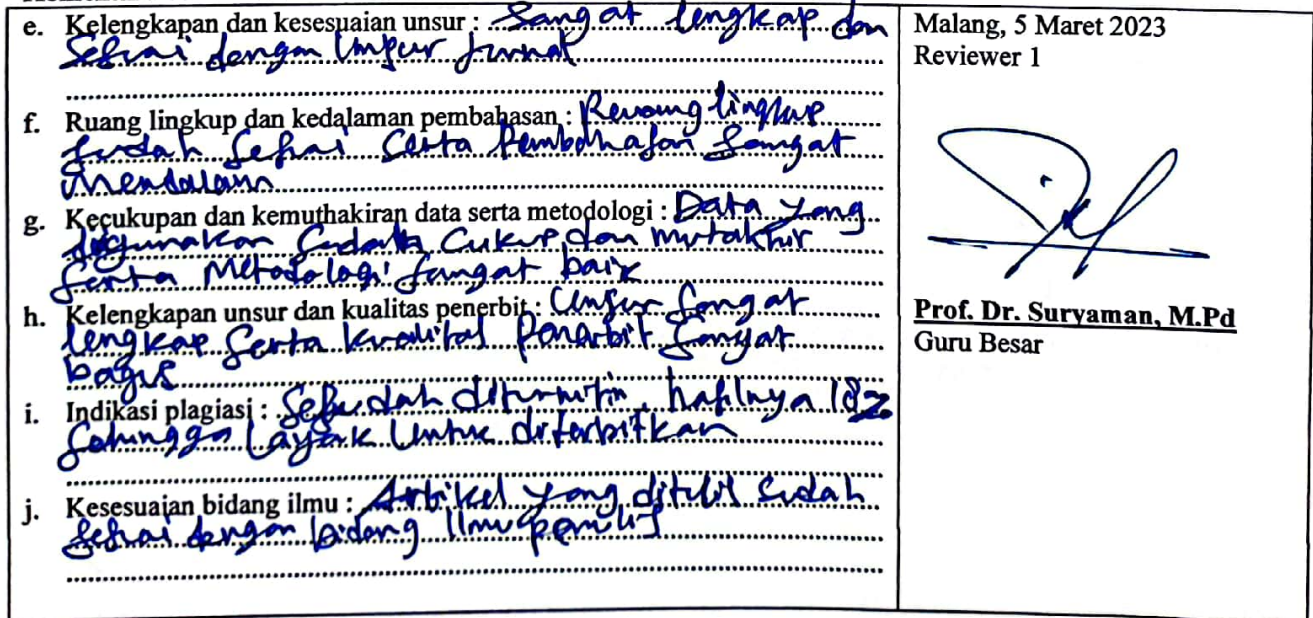 e. Kelengkapan dan kesesuaian unsur : Sangat lengkap dan
sesuai dengan unsur jurnal
f. Ruang lingkup dan kedalaman pembahasan : Ruang lingkup
sudah sesuai serta pembahasan sangat
mendalam
g. Kecukupan dan kemuthakiran data serta metodologi : Data yang
digunakan sudah cukup dan mutakhir
serta metodologi sangat baik
h. Kelengkapan unsur dan kualitas penerbit : Unsur sangat
lengkap serta kualitas penerbit sangat
bagus
i. Indikasi plagiasi : Sesudah diturnitin, hasilnya 18%
sehingga layak untuk diterbitkan
j. Kesesuaian bidang ilmu : Artikel yang ditulis sudah
sesuai dengan bidang ilmu penulis
Malang, 5 Maret 2023
Reviewer 1
Prof. Dr. Suryaman, M.Pd
Guru Besar